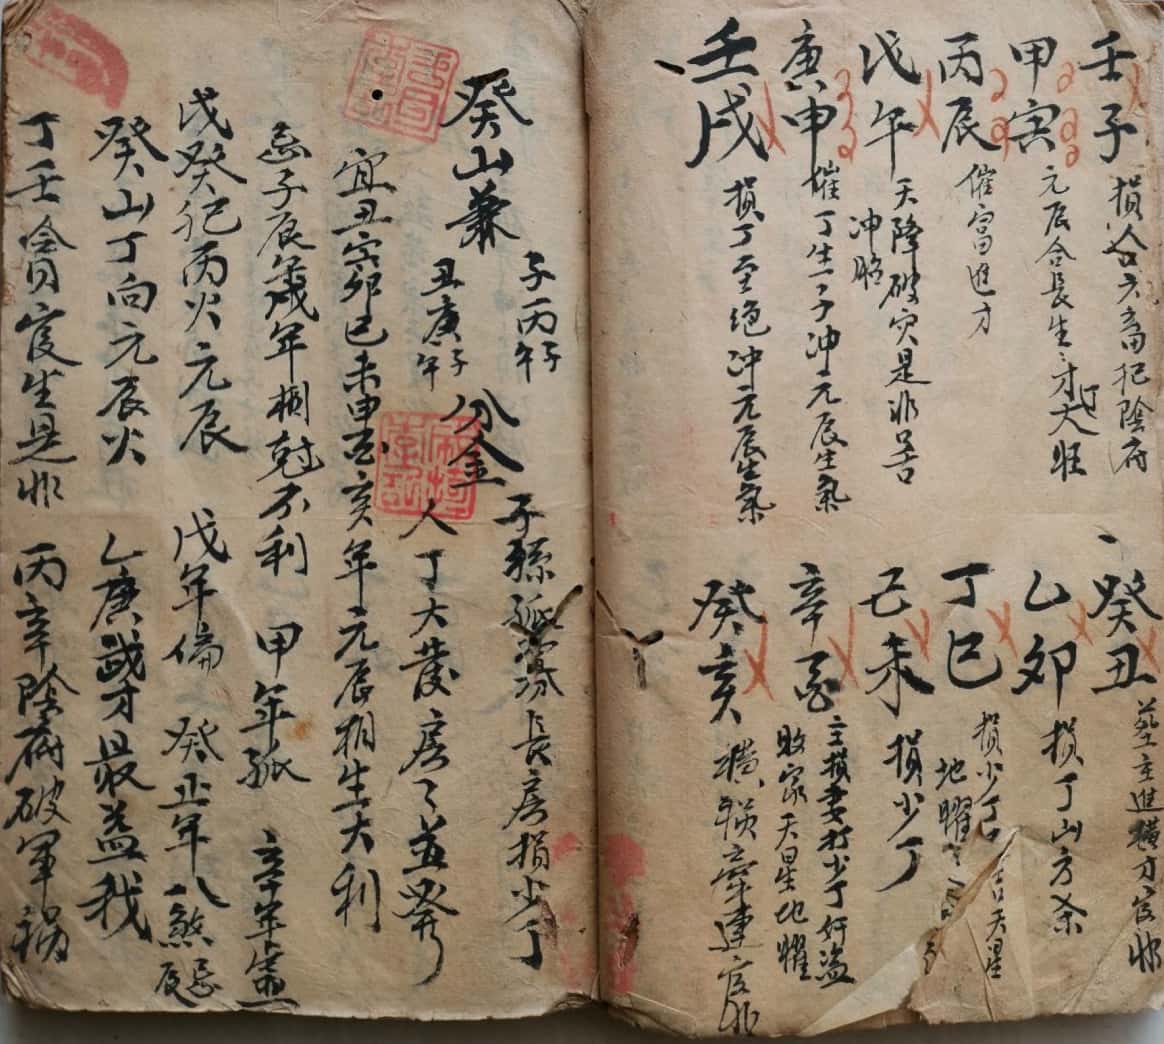 壬子 損合六畜犯陰府
甲寅 元辰合長生才丁大旺
丙辰 催富進才
戊午 天降破灾是非吉
冲胎
庚申 催丁生一子冲元辰生氣
壬戌 損丁至绝冲元辰生氣
癸丑 葬主進横才官非
乙卯 損丁山方杀
丁巳 損少丁 吉天星
地曜
己未 損少丁
辛酉 主損妻打少丁奸盗
敗家天星地曜
癸亥 横損牽連官非
癸山兼 子丙子午 分金 子孫孤寡長房損少丁
丑庚子午 人丁大發房々並發
宜丑寅卯巳未申酉亥年元辰相生大利
忌子辰歲年相尅不利 甲年孤 辛年
戊癸犯丙火元辰 戊年 癸正年八煞忌
癸山丁向元辰火 乙庚 才最益我
丁壬會官生是非 丙辛陰府破軍禍